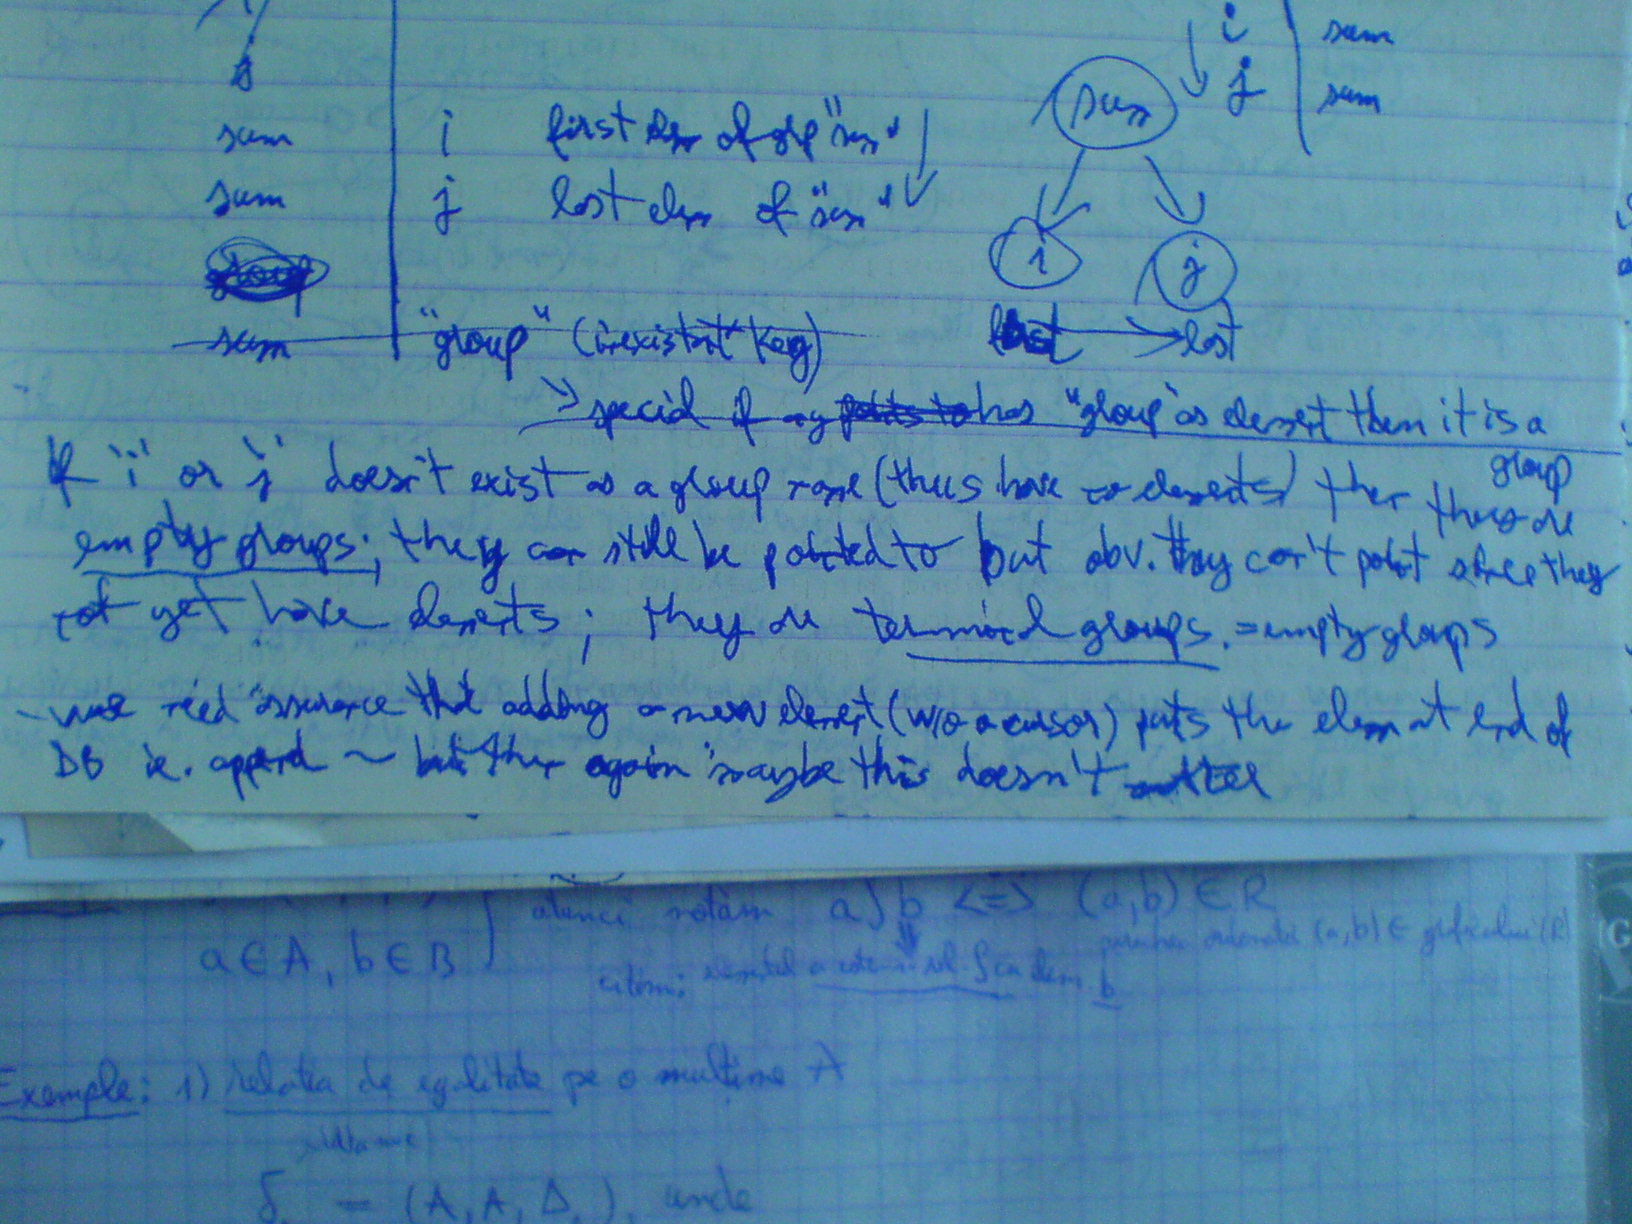 j
i sum
j sum
sum i first elem of grp "sum"
sum
sum j last elem of "sum"
i j
group
sum "group" (inexistent key)
first last
special if any points to has "group" as element then it is a
group
If "i" or "j" doesn't exist as a group name (thus have no elements) then they are
empty groups; they can still be pointed to but obv. they can't point since they
not yet have elements; they are terminal groups. = empty groups
- we need assurance that adding a new element (w/o a cursor) puts the elem at end of
DB ie. append ~ but then again maybe this doesn't matter
atunci notăm a ρ b <=> (a,b) ∈ R
a ∈ A, b ∈ B
citim: elementul a este în rel. ρ cu elem b
(a,b) ∈ graficului (R)
Exemple: 1) relatia de egalitate pe o mulțime A
= (A, A, Δ ), unde